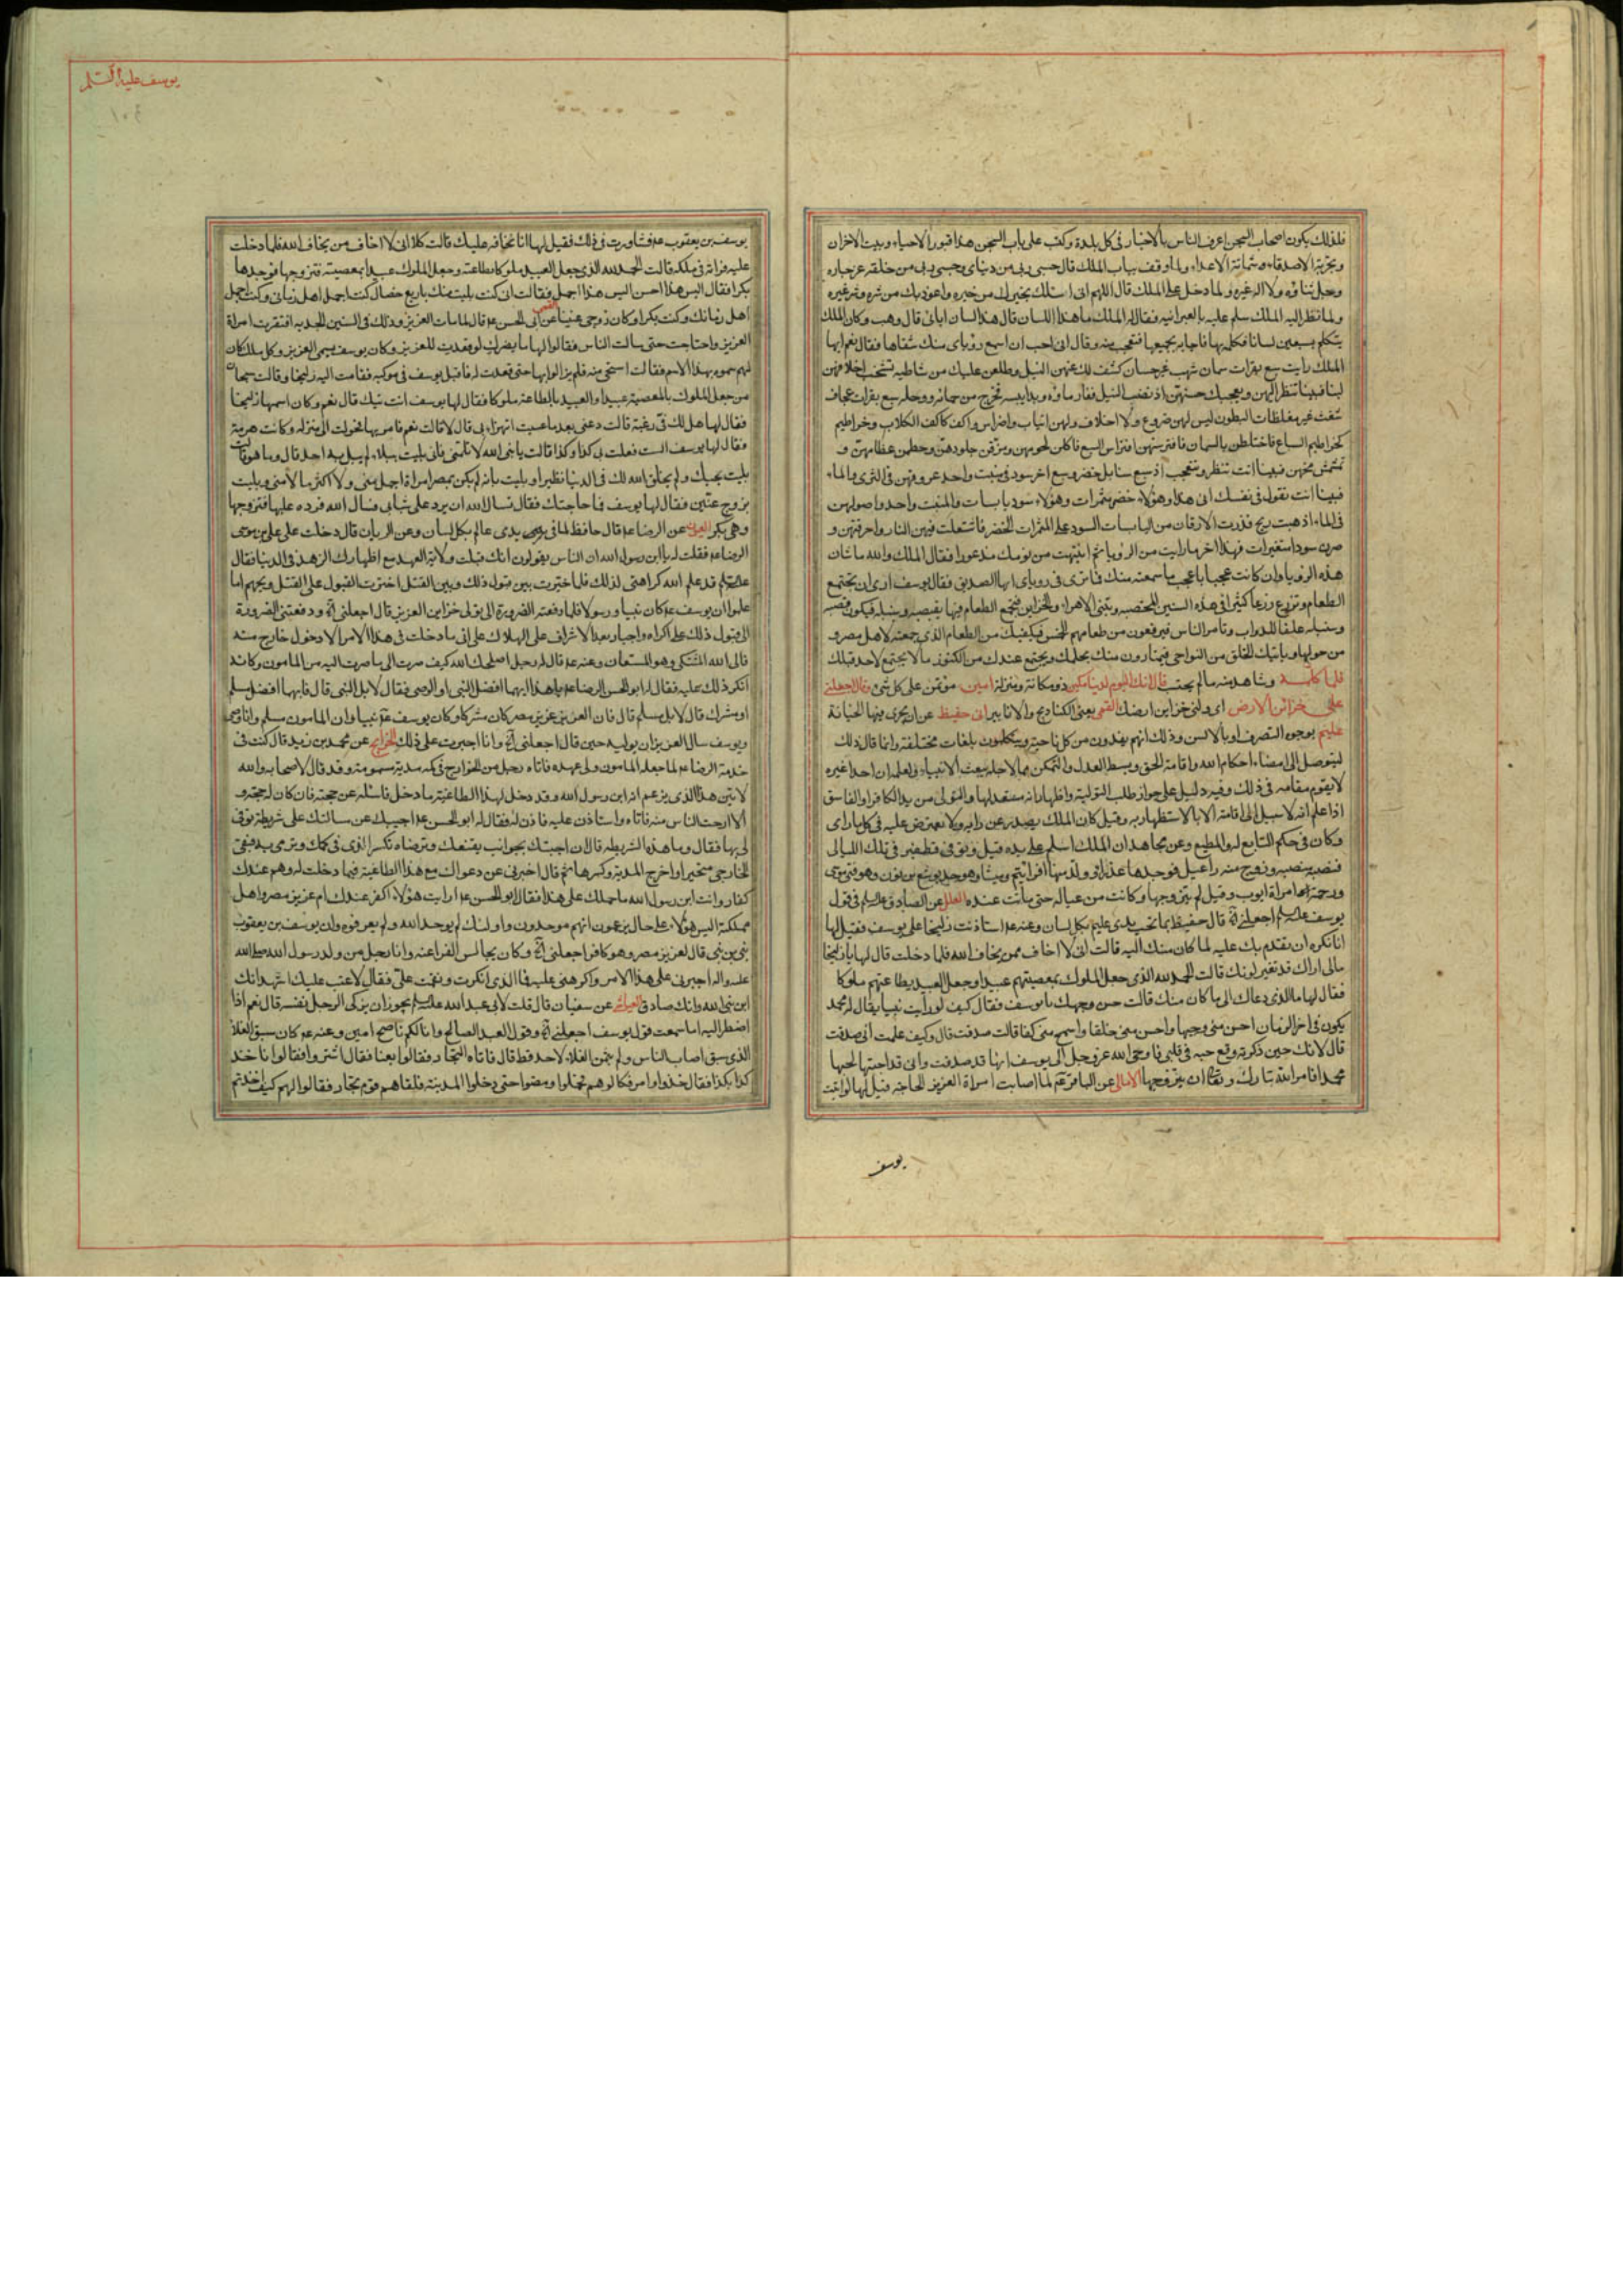 فلذلك يكون اصحاب السجن اعرف الناس بالاخبار فى كل بلدة وكتب على باب السجن هذا قبور الاحياء وبيت الاحزان
وتجربة الاصدقاء وشماتة الاعداء ولما وقف بباب الملك قال حسبى ربى من دنياى وحسبى ربى من خلقه عز جاره
وجل ثناؤه ولا اله غيره ولما دخل على الملك قال اللهم انى اسئلك بخيرك من خيره واعوذ بك من شره وشر غيره
ولما نظر اليه الملك سلم عليه بالعبرانيه فقال له الملك ما هذا اللسان قال هذا لسان ابائى قال وهب وكان الملك
يتكلم بسبعين لسانا فكلمه بها فاجابه بجميعها فتعجب منه وقال انى احب ان اسمع رؤياى منك شفاها فقال نعم ايها
الملك رايت سبع بقرات سمان شهب غر حسان كشف لك عنهن النيل وطلعن عليك من شاطيه تشخب اخلافهن
لبنا فبينا تنظر اليهن ويعجبك حسنهن اذ نضب النيل فغار ماؤه وبدا يبسه فخرج من حمائه ووحله سبع بقرات عجاف
شعث غبر مقلصات البطون ليس لهن ضروع ولا اخلاف ولهن انياب واضراس واكف كاكف الكلاب وخراطيم
كخراطيم السباع فاختلطن بالسمان فافترستهن افتراس السبع فاكلن لحومهن ومزقن جلودهن وحطمن عظامهن و
تمششن مخهن فبينا انت تنظر وتتعجب اذ سبع سنابل خضر وسبع اخر سود فى منبت واحد عروقهن فى الثرى والماء
فبينا انت تقول فى نفسك انى هذا وهؤلاء خضر مثمرات وهؤلاء سود يابسات والمنبت واحد واصولهن
فى الماء اذ هبت ريح فذرت الارفات من اليابسات السود على المثمرات الخضر فاشتعلت فيهن النار واحرقتهن و
صرن سودا متغيرات فهذا اخر ما رايت من الرؤيا ثم انتبهت من نومك مذعورا فقال الملك والله ما شان
هذه الرؤيا وان كانت عجبا باعجب ما سمعته منك فما ترى فى روياى ايها الصديق فقال يوسف ارى ان تجمع
الطعام وتزرع زرعا كثيرا فى هذه السنين المخصبه وتبنى الاهراء والخزاين فتجمع الطعام فيها بقصبه وسنبله فيكون قصبه
وسنبله علفا للدواب وتامر الناس فيرفعون من طعامهم الخمس فيكفيك من الطعام الذى جمعته لاهل مصر و
من حولها وياتيك الخلق من النواحى فيمتارون منك بحكمك ويجتمع عندك من الكنوز ما لا يجتمع لاحد قبلك
فلما كلمه وشاهد منه ما لم يحتسب قال انك اليوم لدينا مكين ذو مكانة ومنزلة امين مؤتمن على كل شئ قال اجعلنى
على خزائن الارض اى ولنى خزاين ارضك القمى يعنى الكناديج والانابير انى حفيظ عن ان يجرى فيها الخيانة
عليم بوجوه التصرف او بالالسن وذلك انهم يفدون من كل ناحية ويتكلمون بلغات مختلفة وانما قال ذلك
ليتوصل الى امضاء احكام الله واقامة الحق وبسط العدل والتمكن مما لاجله يبعث الانبياء ولعلمه ان احدا غيره
لا يقوم مقامه فى ذلك وفيه دليل على جواز طلب التولية واظهار انه مستعد لها والتولى من يد الكافر او الفاسق
اذا علم انه لا سبيل الى اقامته الا بالاستظهار به وقيل كان الملك يصدر عن رايه ولا يعترض عليه فى كل ما راى
وكان فى حكم التابع له والمطيع وعن مجاهد ان الملك اسلم على يده قيل وتوفى قطفير فى تلك الليالى
فنصبه منصبه وزوج منه راعيل فوجدها عذراء وولد منها افرائيم وميشا وهو جد يوشع بن نون وهو فتى موسى
ورحمة امراة ايوب وقيل لم يتزوجها وكانت من عياله حتى ماتت عنده العلل عن الصادق عليه السلم فى قول
يوسف عليه السلم اجعلنى الآية قال حفيظ بما تحت يدى عليم بكل لسان وعنه ع استاذنت زليخا على يوسف فقيل لها
انا نكره ان نقدم بك عليه لما كان منك اليه قالت انى لا اخاف ممن يخاف الله فلما دخلت قال لها يا زليخا
مالى اراك قد تغير لونك قالت الحمد لله الذى جعل الملوك بمعصيتهم عبيدا وجعل العبيد بطاعتهم ملوكا
فقال لها ما الذى دعاك الى ما كان منك قالت حسن وجهك يا يوسف فقال كيف لو رايت نبيا يقال له محمد
يكون فى اخر الزمان احسن منى وجها واحسن منى خلقا واسمح منى كفا قالت صدقت قال وكيف علمت انى صدقت
قال لانك حين ذكرته وقع حبه فى قلبى فاوحى الله عز وجل الى يوسف انها قد صدقت وانى قد احببتها لحبها
محمدا فامر الله تبارك وتعالى ان يتزوجها الامالى عن الباقر ع لما اصابت امراة العزيز الحاجه قيل لها لو اتيت
يوسف
يوسف عليه السلم
١٠٤
يوسف بن يعقوب ع فشاورت فى ذلك فقيل لها انا نخافه عليك قالت كلا انى لا اخاف من يخاف الله فلما دخلت
عليه فراته فى ملكه قالت الحمد لله الذى جعل العبيد ملوكا بطاعته وجعل الملوك عبيدا بمعصيته فتزوجها فوجدها
بكرا فقال اليس هذا احسن اليس هذا اجمل فقالت انى كنت بليت منك باربع خصال كنت اجمل اهل زمانى وكنت اجمل
اهل زمانك وكنت بكرا وكان زوجى عنينا القمى عن ابى الحسن ع قال لما مات العزيز وذلك فى السنين الجدبه افتقرت امراة
العزيز واحتاجت حتى سالت الناس فقالوا لها ما يضرك لو قعدت للعزيز وكان يوسف يسمى العزيز وكل ملك كان
لهم سموه بهذا الاسم فقالت استحى منه فلم يزالوا بها حتى قعدت له فاقبل يوسف فى موكبه فقامت اليه زليخا وقالت سبحان
من جعل الملوك بالمعصية عبيدا والعبيد بالطاعة ملوكا فقال لها يوسف انت تيك قال نعم وكان اسمها زليخا
فقال لها هل لك فى رغبة قالت دعنى بعد ما عميت اتهزا بى قال لا قالت نعم فامر بها فحولت الى منزله وكانت هرمة
فقال لها يوسف الست فعلت بى كذا وكذا قالت يا نبى الله لا تلمنى فانى بليت ببلاء لم يبل به احد قال وما هو قالت
بليت بحبك ولم يخلق الله لك فى الدنيا نظيرا وبليت بانه لم يكن بمصر امراة اجمل منى ولا اكثر مالا منى وبليت
بزوج عنين فقال لها يوسف فما حاجتك فقال تسال الله ان يرد على شبابى فسال الله فرده عليها فتزوجها
وهى بكر العيون عن الرضا ع قال حافظ لما فى يدى عالم بكل لسان وعن الريان قال دخلت على على بن موسى
الرضا ع فقلت له يا ابن رسول الله ان الناس يقولون انك قبلت ولاية العهد مع اظهارك الزهد فى الدنيا فقال
عليه السلم قد علم الله كراهتى لذلك فلما خيرت بين قبول ذلك وبين القتل اخترت القبول على القتل ويحهم اما
علموا ان يوسف ع كان نبيا ورسولا فلما دفعته الضرورة الى تولى خزاين العزيز قال اجعلنى الآية ودفعتنى الضرورة
الى قبول ذلك على اكراه واجبار بعد الاشراف على الهلاك على انى ما دخلت فى هذا الامر الا دخول خارج منه
فالى الله المشتكى وهو المستعان وعنه ع قال له رجل اصلحك الله كيف صرت الى ما صرت اليه من المامون وكانه
انكر ذلك عليه فقال له ابو الحسن الرضا ع يا هذا ايهما افضل النبى او الوصى فقال لا بل النبى قال فايهما افضل مسلم
او مشرك قال لا بل مسلم قال فان العزيز عزيز مصر كان مشركا وكان يوسف ع نبيا وان المامون مسلم وانا وصى
ويوسف سال العزيز ان يوليه حين قال اجعلنى الآية وانا اجبرت على ذلك الخرايج عن محمد بن زيد قال كنت فى
خدمة الرضا ع لما جعله المامون ولى عهده فاتاه رجل من الخوارج فى كمه مدية مسمومة وقد قال لاصحابه والله
لاتين هذا الذى يزعم انه ابن رسول الله وقد دخل لهذا الطاغية ما دخل فاسئله عن حجته فان كان له حجة و
الا ارحت الناس منه فاتاه واستاذن عليه فاذن له فقال له ابو الحسن ع اجيبك عن مسالتك على شريطة توفى
لى بها فقال وما هذه الشريطه قال ان اجبتك بجواب يقنعك وترضاه تكسر الذى فى كمك وترمى به فبقى
الخارجى متحيرا واخرج المدية وكسرها ثم قال اخبرنى عن دخولك مع هذا الطاغية فيما دخلت له وهم عندك
كفار وانت ابن رسول الله ما حملك على هذا فقال ابو الحسن ع ارايت هؤلاء اكفر عندك ام عزيز مصر واهل
مملكته اليس هؤلاء على حال يزعمون انهم موحدون واولئك لم يوحد الله ولم يعرفوه وان يوسف بن يعقوب
نبى بن نبى قال لعزيز مصر وهو كافر اجعلنى الآية وكان يجالس الفراعنه وانا رجل من ولد رسول الله صلى الله
عليه واله اجبرنى على هذا الامر واكرهنى عليه فما الذى انكرت ونقمت على فقال لا عتب عليك اشهد انك
ابن نبى الله وانك صادق العياشى عن سفيان قال قلت لابى عبد الله عليه السلم يجوز ان يزكى الرجل نفسه قال نعم اذا
اضطر اليه اما سمعت قول يوسف اجعلنى الآية وقول العبد الصالح وانا لكم ناصح امين وعنه ع كان سبق الغلاء
الذى سبق اصاب الناس ولم يتمن الغلاء لاحد قط قال فاتاه التجار فقالوا بعنا فقال اشتروا فقالوا ناخذ
كذا بكذا فقال خذوا وامر فكالوهم فحملوا ومضوا حتى دخلوا المدينة فلقاهم قوم تجار فقالوا لهم كيف اخذتم